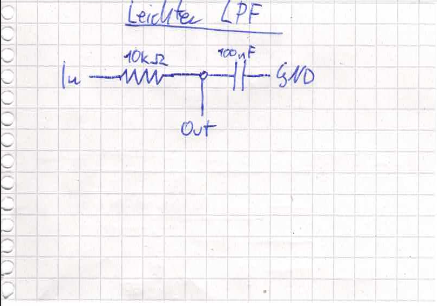 Leichter LPF
10kΩ 100nF
In GND
Out